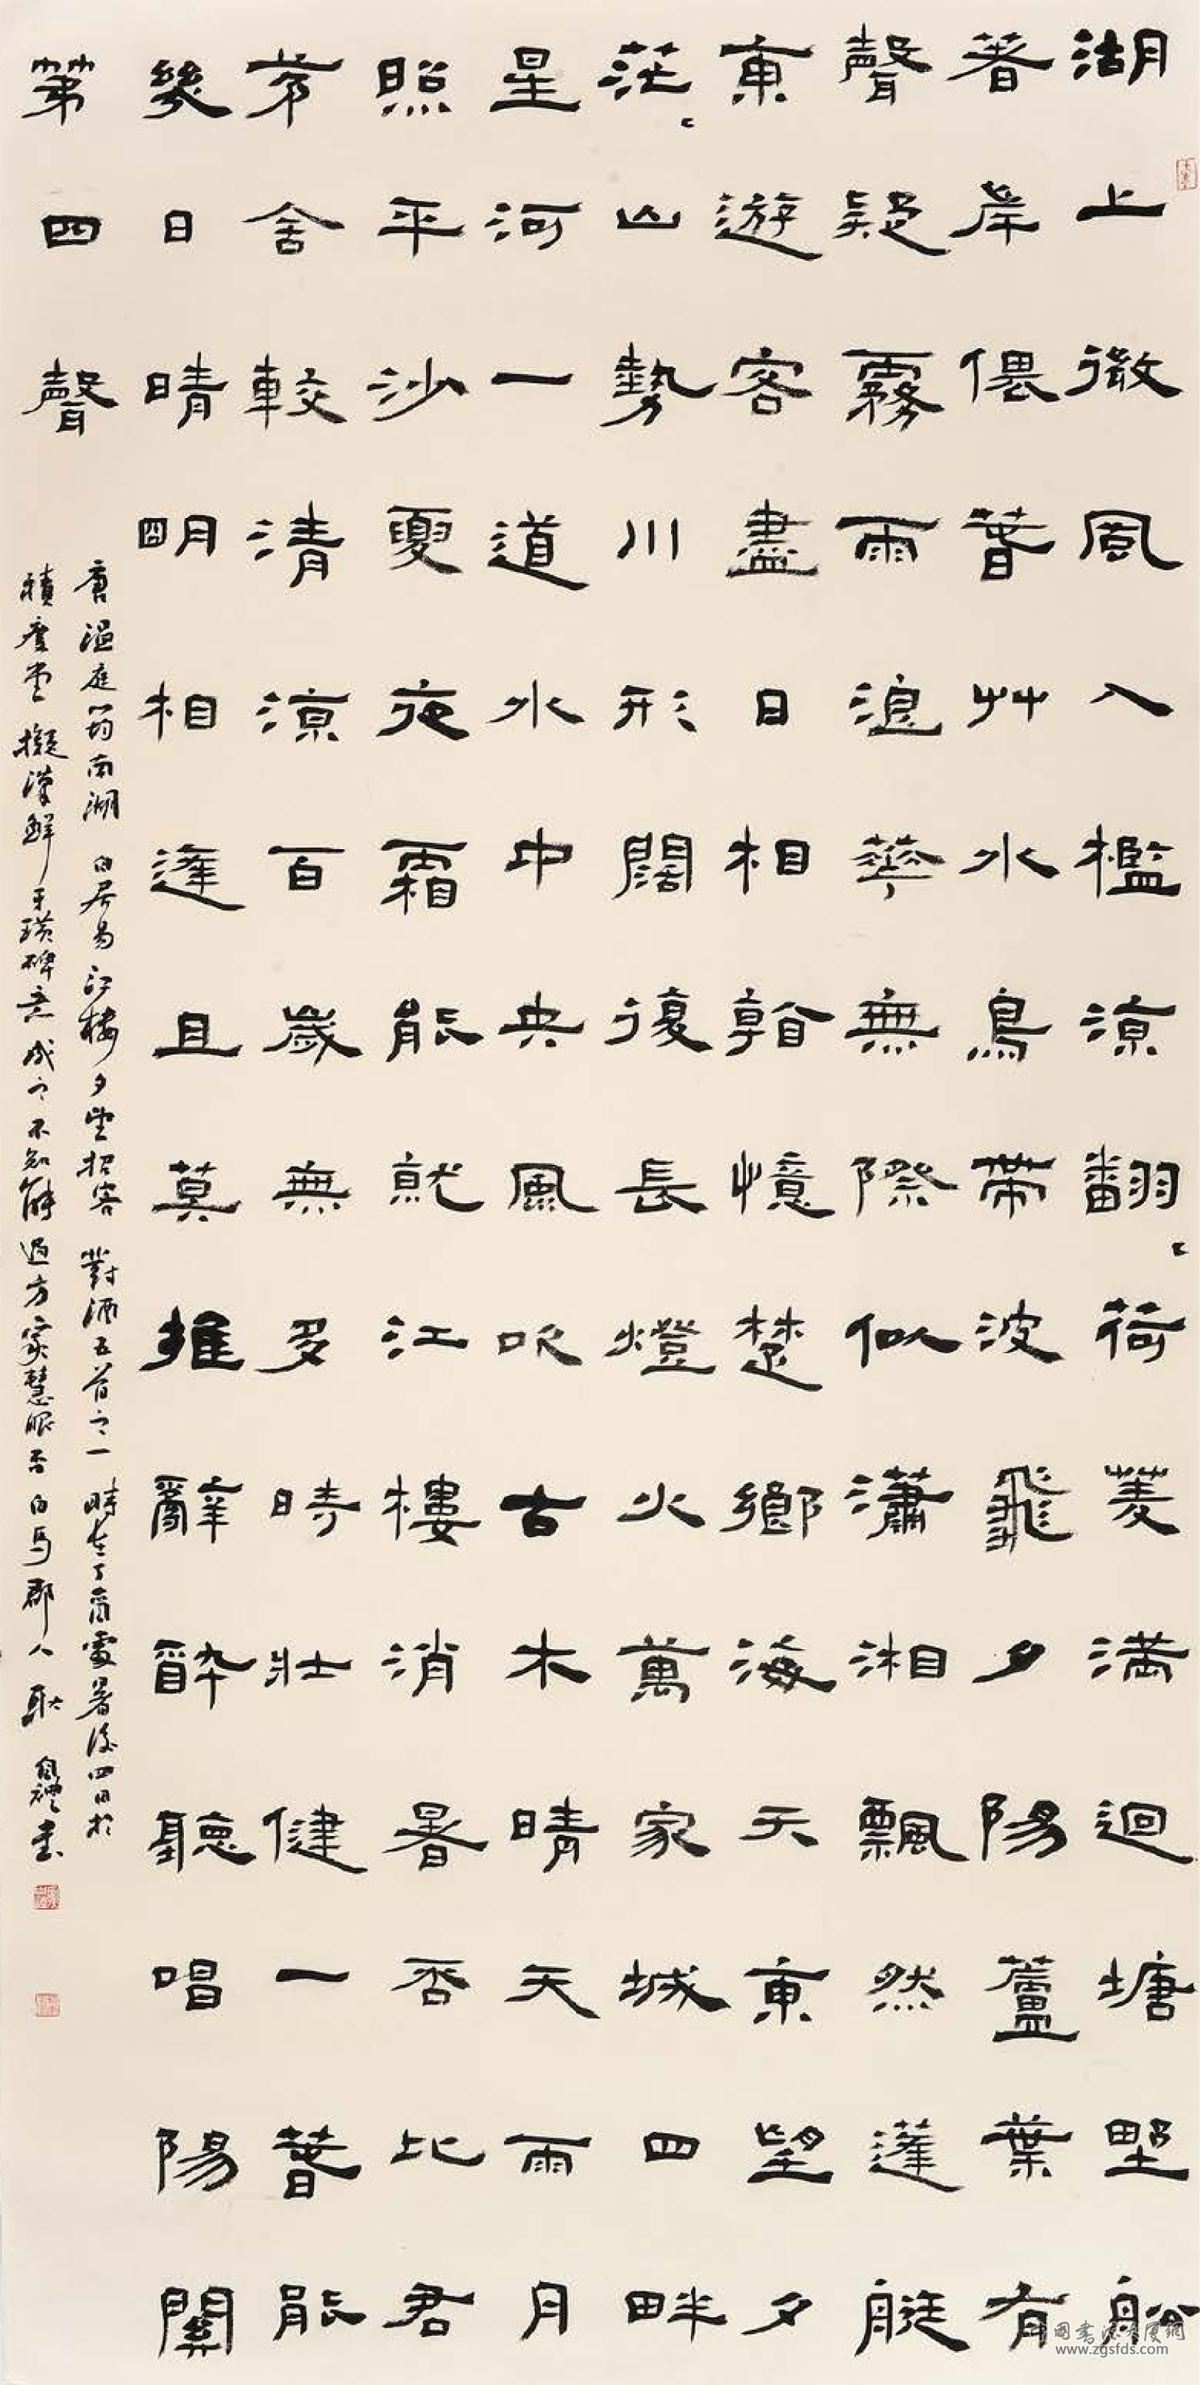 湖上微風入檻涼翻〻荷菱滿迴塘野船
著岸偎春艸水鳥帶波飛夕陽蘆葉有
聲疑霧雨浪華無際似瀟湘飄然蓬艇
東遊客盡日相看憶楚鄉海天東望夕
茫〻山勢川形闊復長燈火萬家城四畔
星河一道水中央風吹古木晴天雨月
照平沙夏夜霜能就江樓消暑否比君
茅舍較清涼百歲無多時壯健一春能
幾日晴明相逢且莫推辭醉聽唱陽關
第四聲
唐溫庭筠南湖 白居易江樓夕望招客 對酒五首之一 時在丁酉處暑後四日於
積度堂擬漢鮮于璜碑意成之不知能過方家慧眼否白馬郡人耿自禮書
中國書法大廈網
www.zgsfds.com